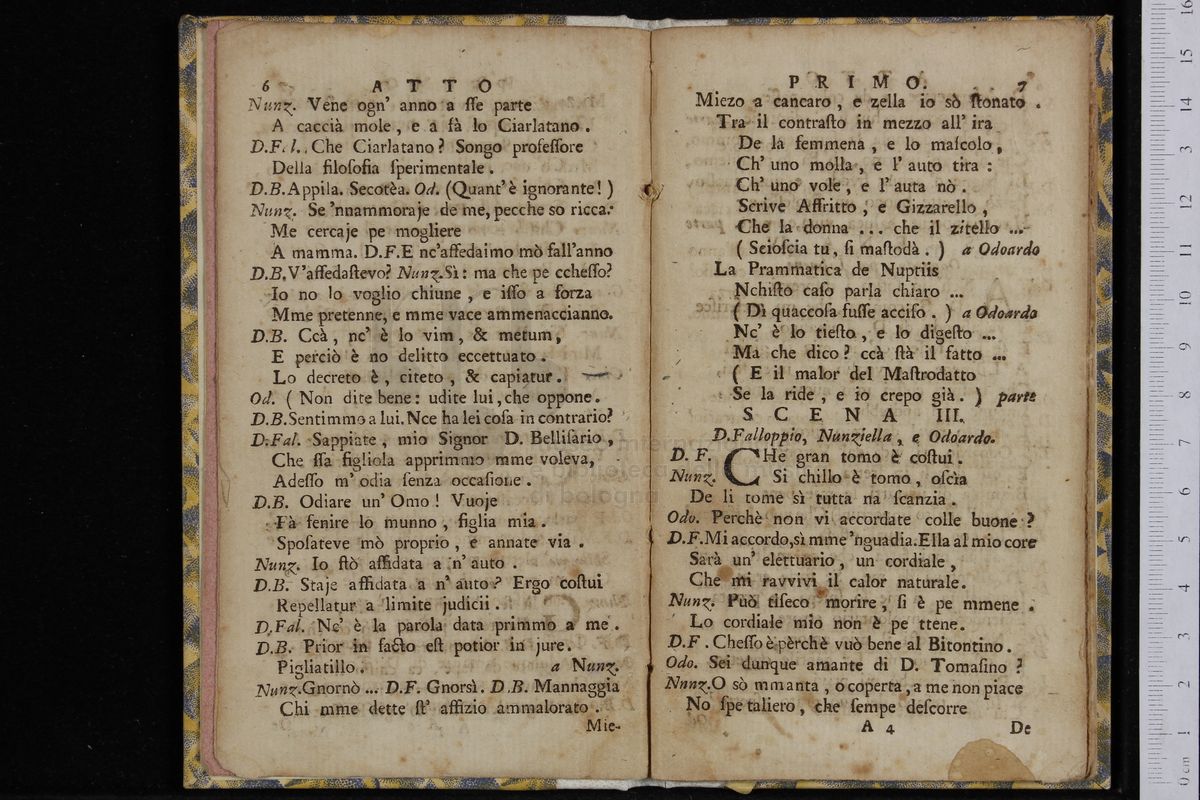 6 ATTO
Nunz. Vene ogn' anno a ſſe parte
A caccià mole, e a fà lo Ciarlatano.
D.F. l. Che Ciarlatano? Songo profeſſore
Della filoſofia ſperimentale.
D.B. Appila. Secotèa. Od. (Quant' è ignorante!)
Nunz. Se 'nnammoraje de me, pecche so ricca.
Me cercaje pe mogliere
A mamma. D.F. E nc'affedaimo mò fall'anno
D.B. V'affedaſtevo? Nunz. Sì: ma che pe ccheſſo?
Io no lo voglio chiune, e iſſo a forza
Mme pretenne, e mme vace ammenaccianno.
D.B. Ccà, nc' è lo vim, & metum,
E perciò è no delitto eccettuato.
Lo decreto è, citeto, & capiatur.
Od. (Non dite bene: udite lui, che oppone.
D.B. Sentimmo a lui. Nce ha lei coſa in contrario?
D.Fal. Sappiate, mio Signor D. Belliſario,
Che ſſa figliola apprimmo mme voleva,
Adeſſo m' odia ſenza occaſione.
D.B. Odiare un' Omo! Vuoje
Fà fenire lo munno, figlia mia.
Spoſateve mò proprio, e annate via.
Nunz. Io ſtò affidata a n' auto.
D.B. Staje affidata a n' auto? Ergo coſtui
Repellatur a limite judicii.
D.Fal. Nc' è la parola data primmo a me.
D.B. Prior in facto eſt potior in jure.
Pigliatillo. a Nunz.
Nunz. Gnornò ... D.F. Gnorsì. D.B. Mannaggia
Chi mme dette ſt' affizio ammalorato.
Mie-
PRIMO. 7
Miezo a cancaro, e zella io sò ſtonato.
Tra il contraſto in mezzo all' ira
De la femmena, e lo maſcolo,
Ch' uno molla, e l' auto tira:
Ch' uno vole, e l' auta nò.
Scrive Affritto, e Gizzarello,
Che la donna ... che il zitello ...
(Scioſcia tu, ſi maſtodà.) a Odoardo
La Prammatica de Nuptiis
Nchiſto caſo parla chiaro ...
(Dì quaccoſa fuſſe acciſo.) a Odoardo
Nc' è lo tieſto, e lo digeſto ...
Ma che dico? ccà ſtà il fatto ...
(E il malor del Maſtrodatto
Se la ride, e io crepo già.) parte
SCENA III.
D.Falloppio, Nunziella, e Odoardo.
D. F. CHe gran tomo è coſtui.
Nunz. Si chillo è tomo, oſcìa
De li tome sì tutta na ſcanzia.
Odo. Perchè non vi accordate colle buone?
D.F. Mi accordo, sì mme 'nguadia. Ella al mio core
Sarà un' elettuario, un cordiale,
Che mi ravvivi il calor naturale.
Nunz. Può tiſeco morire, ſi è pe mmene.
Lo cordiale mio non è pe ttene.
D.F. Cheſſo è pèrchè vuò bene al Bitontino.
Odo. Sei dunque amante di D. Tomaſino?
Nnnz. O sò mmanta, o coperta, a me non piace
No ſpetaliero, che ſempe deſcorre
A 4 De